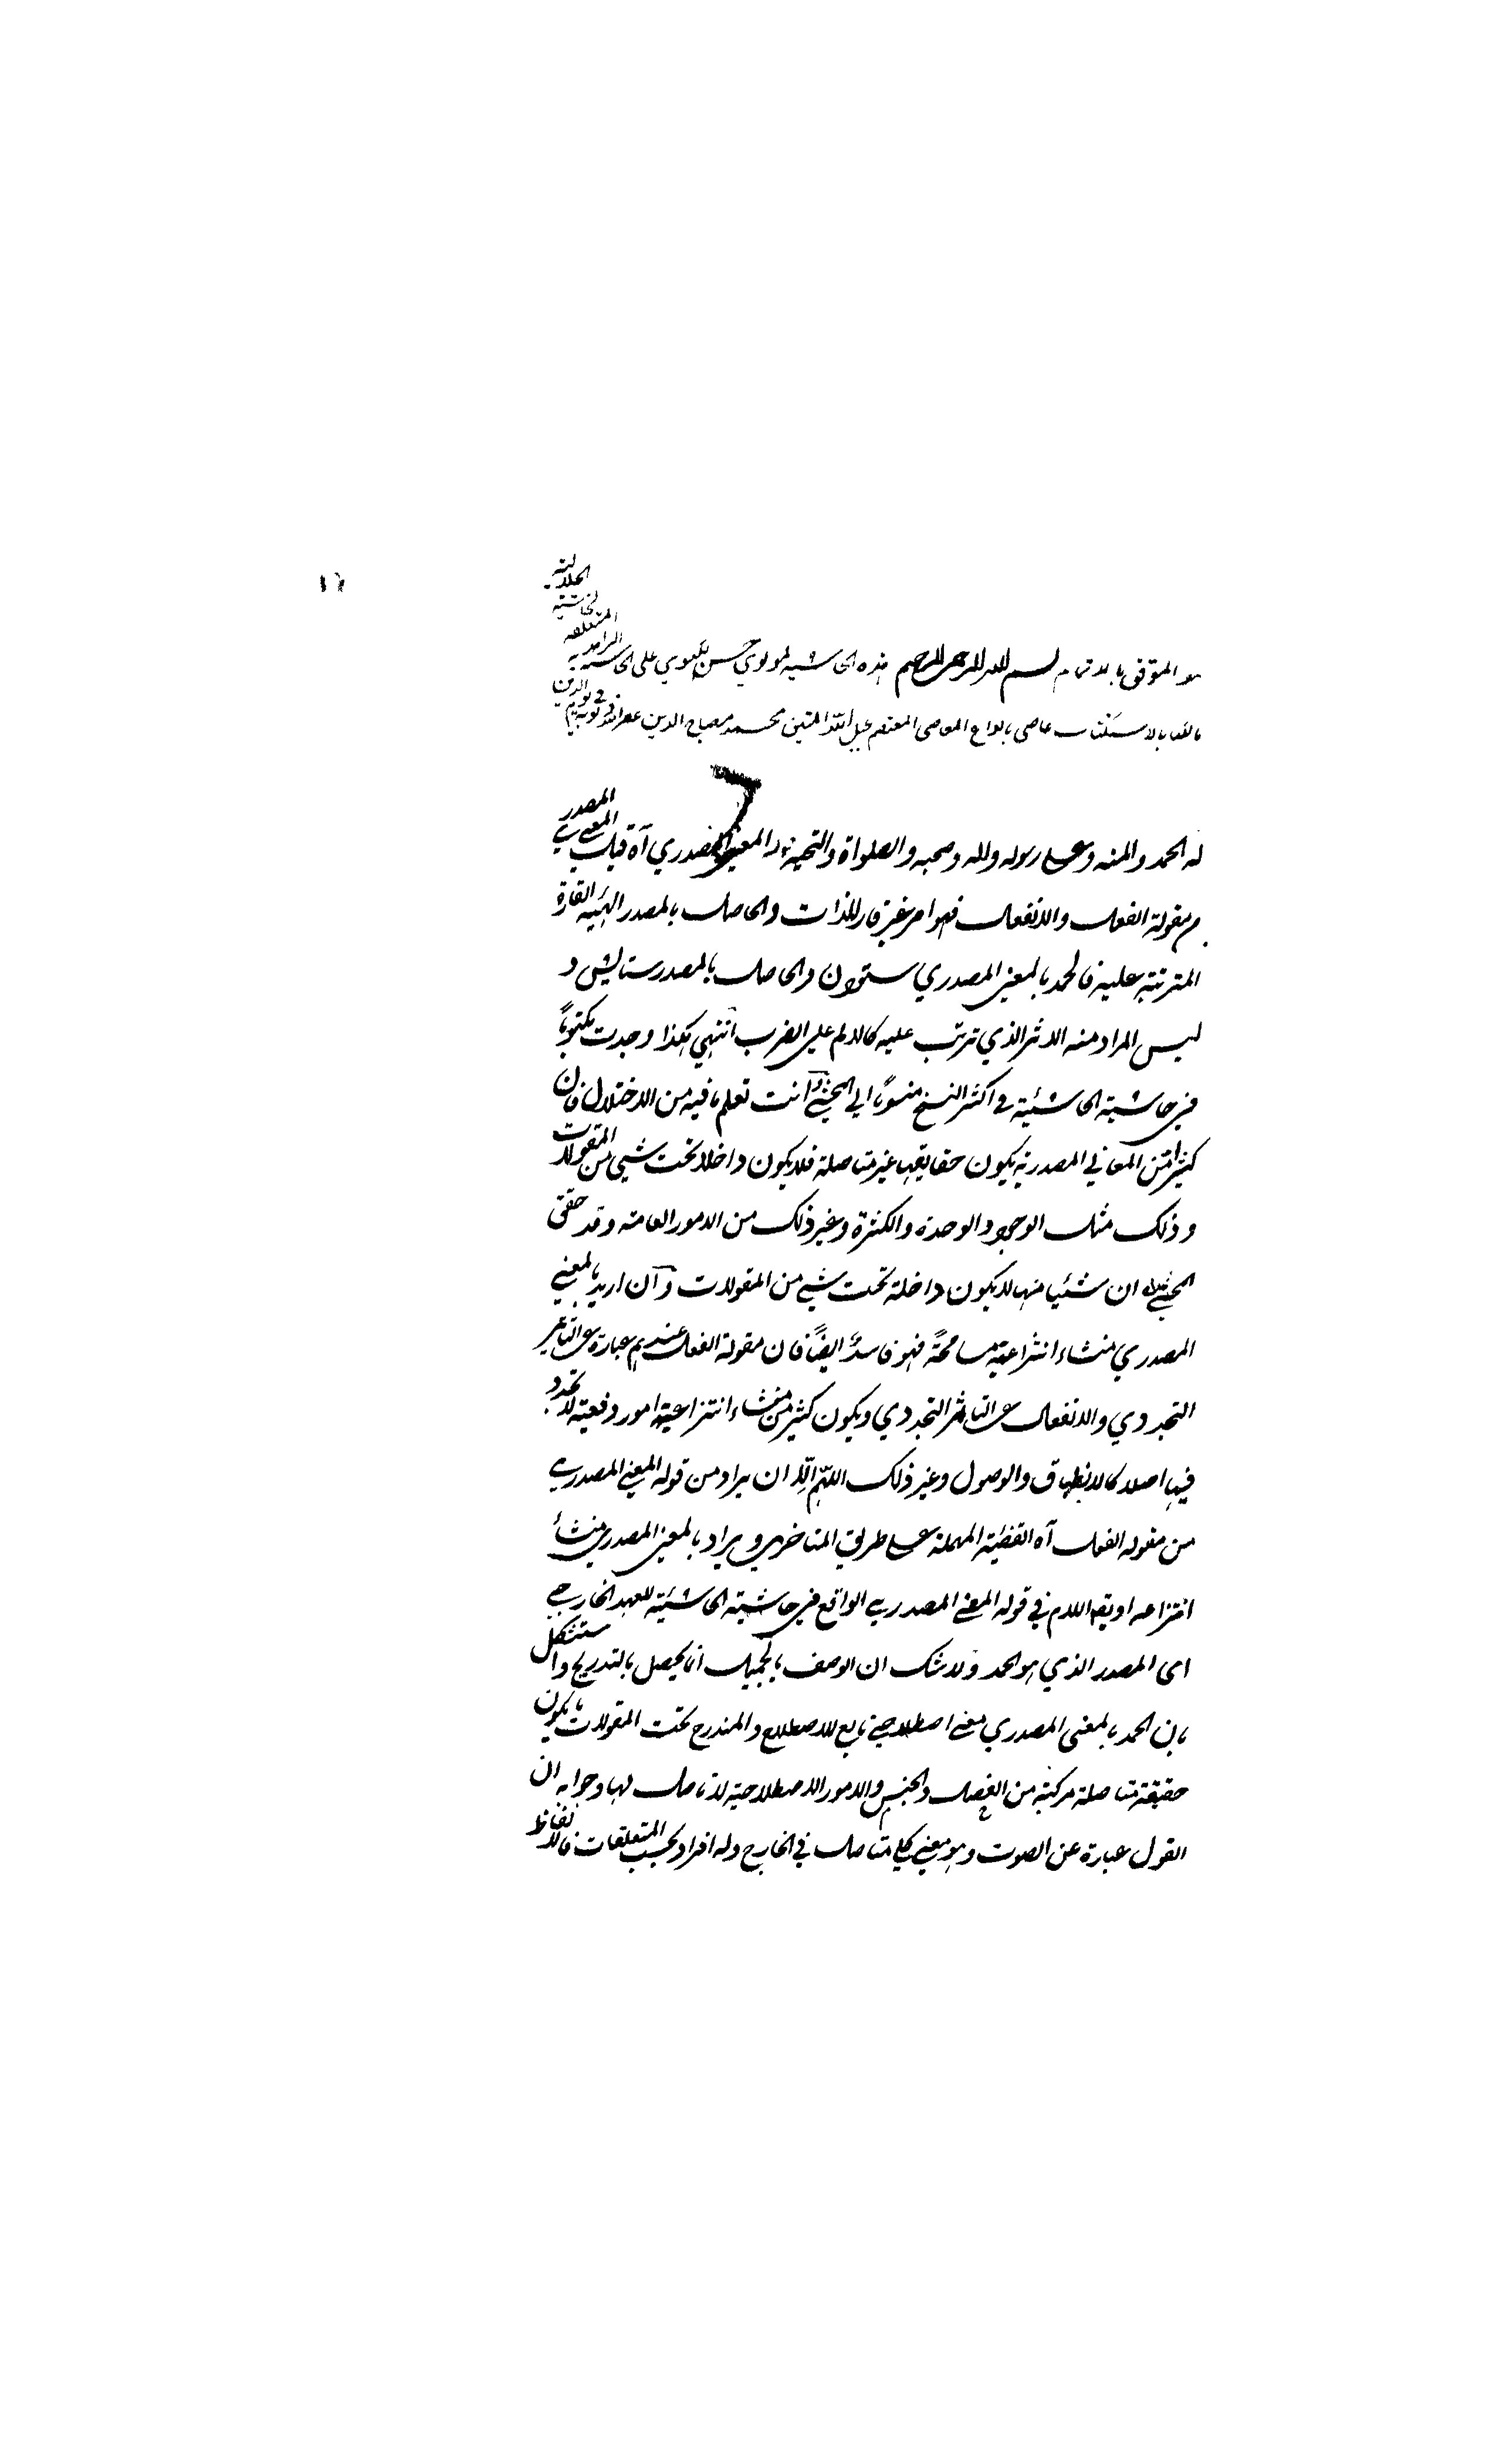 هو الموفق بالاتمام بسم الله الرحمن الرحيم هذه الحاشية لمولوي حسن لكهنوي على الحاشية الزاهدية المتعلقة لحاشية الجلالية
عاصي بانواع المعاصي المعتصم بحبل الله المتين محمد مصباح الدين غفر الله ذنوبه
له الحمد والمنه وعلى رسوله واله وصحبه والصلواة والتحية قوله المعنى المصدري آه قيل المعنى المصدري
من مقولة الفعل والانفعال فهو امر غير قار الذات والحاصل بالمصدر الهيئة القارة
المترتبة عليه فالحمد بالمعنى المصدري ستودن والحاصل بالمصدر ستايش و
ليس المراد منه الاثر الذي ترتب عليه كالالم على الضرب انتهى هكذا وجدت مكتوبًا
في حاشية الحاشية في اكثر النسخ منسوبًا الى المحشي وانت تعلم ما فيه من الاختلال فان
كثيرا من المعاني المصدرية يكون حقايقها غير متاصلة فلا يكون داخلا تحت شيء من المقولات
وذلك مثل الوجود والوحدة والكثرة وغير ذلك من الامور العامة وقد حقق
المحشي ان شيئا منها لا يكون داخلة تحت شيء من المقولات وان اريد بالمعنى
المصدري منشاء انتزاعه مسامحةً فهو فاسدٌ ايضًا فان مقولة الفعل عندهم عبارة عن التاثير
التجددي والانفعال عن التاثر التجددي ويكون كثير من منشاء انتزاعية امور دفعية لا تجدد
فيها اصلا كالانطباق والوصول وغير ذلك اللهم الّا ان يراد من قوله المعنى المصدري
من مقوله الفعل آه القضية المهملة على طريق المتاخرين ويراد بالمعنى المصدري منشأ
انتزاعه او يقال اللام في قوله المعنى المصدري الواقع في حاشية الحاشية للعهد الخارجي
اى المصدر الذي هو الحمد ولا شك ان الوصف بالجميل انما يحصل بالتدريج واستشكل
بان الحمد بالمعنى المصدري معنى اصطلاحي تابع للاصطلاح والمندرج تحت المقولات ما يكون
حقيقة متاصلة مركبة من الفصل والجنس والامور الاصطلاحية لا تاصل لها وجوابه ان
القول عبارة عن الصوت وهو معنى كلي متاصل في الخارج وله افراد بحسب المتعلقات فالالفاظ